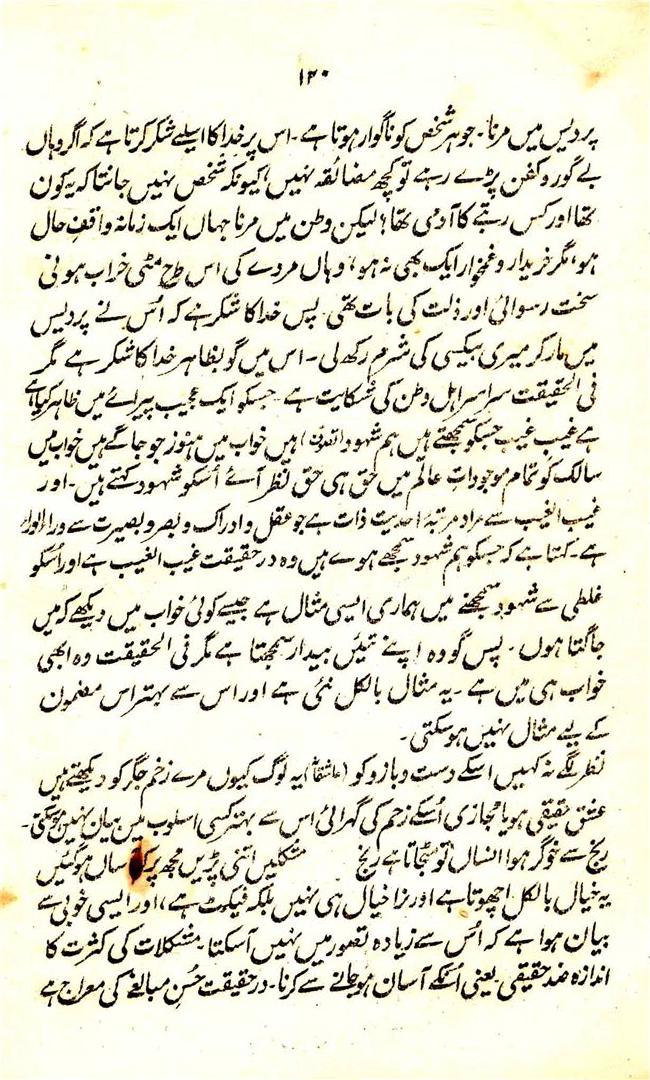 ۱۳۰
پردیس میں مرنا۔ جو ہر شخص کو ناگوار ہوتا ہے۔ اس پر خدا کا اسلیے شکر کرتا ہے کہ اگر وہاں
بے گور و کفن پڑے رہے تو کچھ مضائقہ نہیں؛ کیونکہ شخص نہیں جانتا کہ یہ کون
تھا اور کس رتبے کا آدمی تھا؛ لیکن وطن میں مرنا جہاں ایک زمانہ واقفِ حال
ہو، مگر خریدار و غمخوار ایک بھی نہ ہو، وہاں مردے کی اس طرح مٹی خراب ہونی
سخت رسوائی اور ذلت کی بات تھی۔ پس خدا کا شکر ہے کہ اُس نے پردیس
میں مار کر میری بیکسی کی شرم رکھ لی۔ اس میں گو بظاہر خدا کا شکر ہے مگر
فی الحقیقت سراسر اہل وطن کی شکایت ہے۔ جسکو ایک عجیب پیرائے میں ظاہر کیا ہے
ہے غیب غیب جسکو سمجھتے ہیں ہم شہود (تصوف) ہیں خواب میں ہنوز جو جاگے ہیں خواب میں
سالک کو تمام موجوداتِ عالم میں حق ہی حق نظر آئے اُسکو شہود کہتے ہیں۔ اور
غیب الغیب سے مراد مرتبۂ احدیت ذات ہے جو عقل و ادراک و بصر و بصیرت سے وراء الوراء
ہے۔ کہتا ہے کہ جسکو ہم شہود سمجھے ہوے ہیں وہ در حقیقت غیب الغیب ہے اور اُسکو
غلطی سے شہود سمجھنے میں ہماری ایسی مثال ہے جیسے کوئی خواب میں دیکھے کہ میں
جاگتا ہوں۔ پس گو وہ اپنے تئیں بیدار سمجھتا ہے مگر فی الحقیقت وہ ابھی
خواب ہی میں ہے۔ یہ مثال بالکل نئی ہے اور اس سے بہتر اس مضمون
کے لیے مثال نہیں ہو سکتی۔
نظر لگے نہ کہیں اسکے دست و بازو کو (عاشقانہ) یہ لوگ کیوں مرے زخم جگر کو دیکھتے ہیں
عشق حقیقی ہو یا مجازی اُسکے زخم کی گہرائی اس سے بہتر کسی اسلوب میں بیان نہیں ہو سکتی۔
رنج سے خوگر ہوا انساں تو مٹ جاتا ہے رنج مشکلیں اتنی پڑیں مجھ پر کہ آساں ہو گئیں
یہ خیال بالکل اچھوتا ہے اور نرا خیال ہی نہیں بلکہ فیکٹ ہے، اور ایسی خوبی سے
بیان ہوا ہے کہ اُس سے زیادہ تصور میں نہیں آسکتا۔ مشکلات کی کثرت کا
اندازہ ضدِ حقیقی یعنی اُنکے آسان ہو جانے سے کرنا۔ در حقیقت حُسنِ مبالغے کی معراج ہے